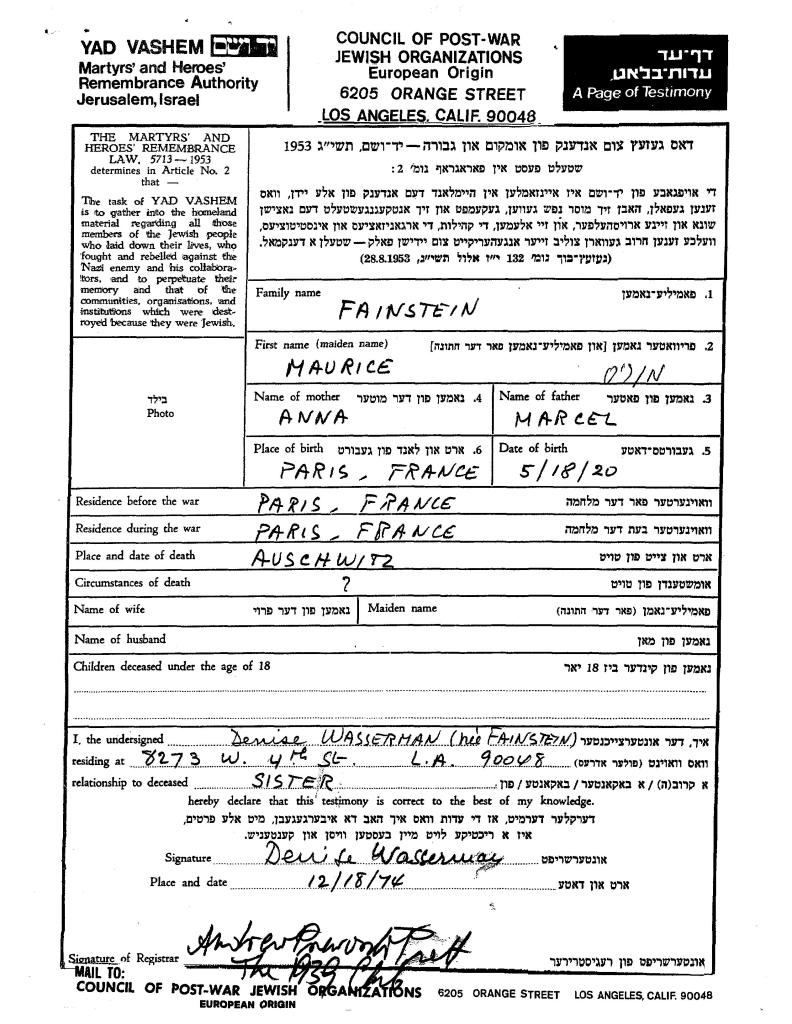 YAD VASHEM יד ושם
Martyrs' and Heroes'
Remembrance Authority
Jerusalem, Israel
COUNCIL OF POST-WAR
JEWISH ORGANIZATIONS
European Origin
6205 ORANGE STREET
LOS ANGELES, CALIF. 90048
דף־עד
עדות־בלאט
A Page of Testimony
THE MARTYRS' AND
HEROES' REMEMBRANCE
LAW, 5713—1953
determines in Article No. 2
that —
The task of YAD VASHEM
is to gather into the homeland
material regarding all those
members of the Jewish people
who laid down their lives, who
fought and rebelled against the
Nazi enemy and his collabora-
tors, and to perpetuate their
memory and that of the
communities, organisations, and
institutions which were dest-
royed because they were Jewish.
דאס געזעץ צום אנדענק פון אומקום און גבורה — יד־ושם, תשי״ג 1953
שטעלט פעסט אין פאראגראף נומ׳ 2:
די אויפגאבע פון יד־ושם איז איינזאמלען אין היימלאנד דעם אנדענק פון אלע יידן, וואס
זענען געפאלן, האבן זיך מוסר נפש געווען, געקעמפט און זיך אנטקעגנגעשטעלט דעם נאצישן
שונא און זיינע ארויסהעלפער, און זיי אלעמען, די קהילות, די ארגאניזאציעס און אינסטיטוציעס,
וועלכע זענען חרוב געווארן צוליב זייער אנגעהעריקייט צום יידישן פאלק — שטעלן א דענקמאל.
(געזעץ־בוך נומ׳ 132 י״ז אלול תשי״ג, 28.8.1953)
Family name 1. פאמיליע־נאמען
FAINSTEIN
First name (maiden name) 2. פריוואטער נאמען [און פאמיליע־נאמען פאר דער חתונה]
MAURICE
בילד
Photo
Name of mother 4. נאמען פון דער מוטער Name of father 3. נאמען פון פאטער
ANNA MARCEL
Place of birth 6. ארט און לאנד פון געבורט Date of birth 5. געבורטס־דאטע
PARIS, FRANCE 5/18/20
Residence before the war PARIS, FRANCE וואוינערטער פאר דער מלחמה
Residence during the war PARIS, FRANCE וואוינערטער בעת דער מלחמה
Place and date of death AUSCHWITZ ארט און צייט פון טויט
Circumstances of death ? אומשטענדן פון טויט
Name of wife נאמען פון דער פרוי Maiden name פאמיליע־נאמן (פאר דער חתונה)
Name of husband נאמען פון מאן
Children deceased under the age of 18 נאמען פון קינדער ביז 18 יאר
I, the undersigned Denise WASSERMAN (née FAINSTEIN) איך, דער אונטערצייכנטער
residing at 8273 W. 4th St. L.A. 90048 וואס וואוינט (פולער אדרעס)
relationship to deceased SISTER א קרוב(ה) / א באקאנטער / באקאנטע / פון
hereby declare that this testimony is correct to the best of my knowledge.
דערקלער דערמיט, אז די עדות וואס איך האב דא איבערגעגעבן, מיט אלע פרטים,
איז א ריכטיקע לויט מיין בעסטן וויסן און קענטעניש.
Signature Denise Wasserman אונטערשריפט
Place and date 12/18/74 ארט און דאטע
Signature of Registrar The 1939 Club אונטערשריפט פון רעגיסטרירער
MAIL TO:
COUNCIL OF POST-WAR JEWISH ORGANIZATIONS 6205 ORANGE STREET LOS ANGELES, CALIF. 90048
EUROPEAN ORIGIN